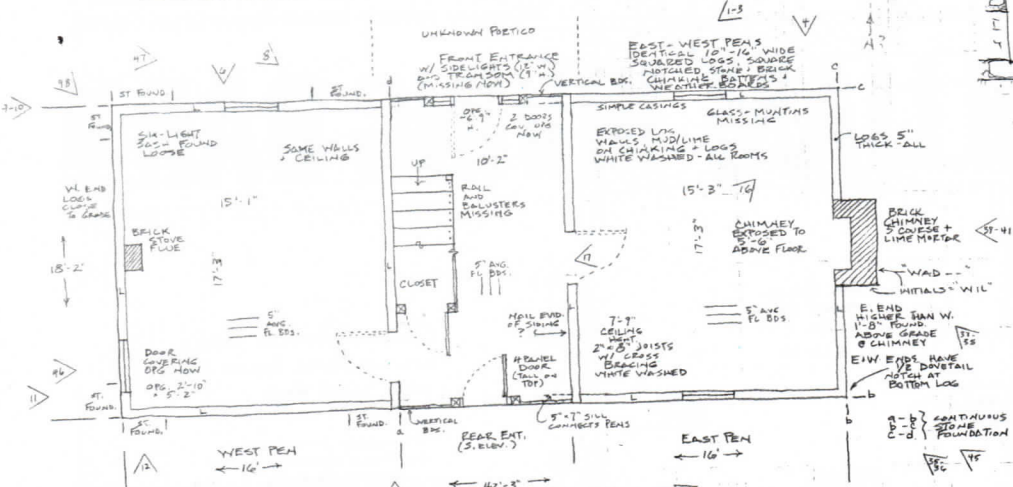 UNKNOWN PORTICO
FRONT ENTRANCE
W/ SIDELIGHTS (12" W)
TRANSOM (9" H)
(MISSING NOW)
VERTICAL BDS.
EAST-WEST PENS
IDENTICAL 10"-16" WIDE
SQUARED LOGS, SQUARE
NOTCHED, STONE & BRICK
CHINKING, BATTENS &
WEATHERBOARDS
1-3
4
N?
47
48
6
8
7-10
ST FOUND
FOUND.
d
c
c
ST.
FOUND.
SIX-LIGHT
SASH FOUND
LOOSE
SAME WALLS
+ CEILING
OPG
6'-9"
H.
2 DOORS
COV. OPG
NOW
10'-2"
SIMPLE CASINGS
GLASS + MUNTINS
MISSING
EXPOSED LOG
WALLS, MUD/LIME
ON CHINKING + LOGS
WHITE WASHED - ALL ROOMS
LOGS 5"
THICK - ALL
W. END
LOGS
CLOSE
TO GRADE
UP
RAIL
AND
BALUSTERS
MISSING
15'-1"
15'-3"
16
BRICK
STOVE
FLUE
17'-3"
17'-3"
CHIMNEY
EXPOSED TO
5'-6"
ABOVE FLOOR
BRICK
CHIMNEY
5 COURSE +
LIME MORTAR
39-41
18'-2"
CLOSET
5" AVG.
FL BDS.
17
"WAD --"
INITIALS = "WIL"
5"
AVG.
FL BDS.
NAIL EVID.
OF SIDING
?
7'-9"
CEILING
HGHT.
2" x 8" JOISTS
W/ CROSS
BRACING
WHITE WASHED
5" AVG
FL BDS
E. END
HIGHER THAN W.
1'-8" FOUND.
ABOVE GRADE
@ CHIMNEY
DOOR
COVERING
OPG NOW
OPG. 2'-10"
x 5'-2"
4 PANEL
DOOR
(TALL ON
TOP)
E + W ENDS HAVE
1/2 DOVETAIL
NOTCH AT
BOTTOM LOG
11
ST.
FOUND.
ST.
FOUND.
ST.
FOUND.
a
VERTICAL
BDS.
REAR ENT.
(S. ELEV.)
5" x 7" SILL
CONNECTS PENS
b
b
a-b
b-c
c-d
CONTINUOUS
STONE
FOUNDATION
12
WEST PEN
16'
EAST PEN
16'
45
42'-3"